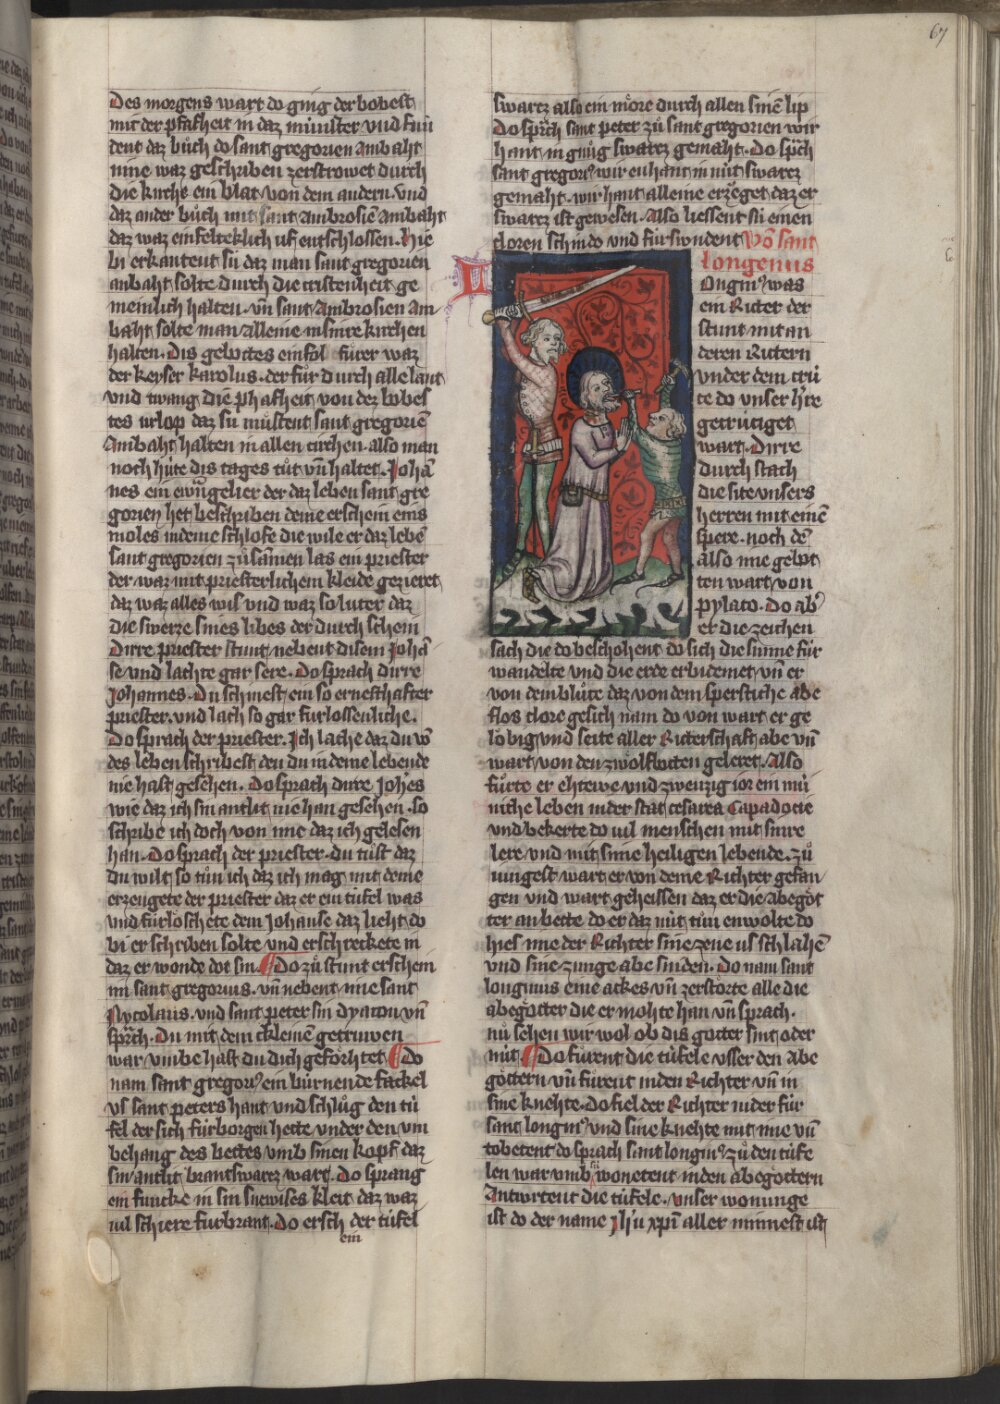 67
Des morgens wart do ging der bobest
mit der pfafheit in daz münster vnd fun
dent daz bůch do sant gregorien ambaht
inne waz geschriben zerströwet durch
die kirche ein blat von dem andern. vnd
daz ander bůch mit sant Ambrosiē Ambaht
daz waz einfelteklich uf entschlossen. Hie
bi erkantent sü daz man sant gregorien
ambaht solte durch die cristenheit ge
meinlich halten. vñ sant Ambrosien Am
baht solte man alleine in sinre kirchen
halten. Dis gebottes ein fol fürer waz
der keyser karolus. der fůr durch alle lant
vnd twang die phafheit von dez bobes
tes urlop daz sü můstent sant gregoriē
Ambaht halten in allen circhen. also man
noch hüte dis tages tůt vñ haltet. Johā
nes ein ewāgelier der daz leben sant gre
gorien het beschriben deme erschein eins
moles in deme schlofe die wile er daz lebē
sant gregorien zůsāmen las ein priester
der war mit priesterlichem kleide gezieret
daz waz alles wis vnd waz so luter daz
die swerze sines libes der durch schein
Dirre priester stunt nebent disem Johā
se vnd lachte gar sere. Do sprach dirre
Johannes. Du schinest ein so ernesthafter
priester. vnd lach so gar furlossenliche.
Do sprach der priester. Ich lache daz du vō
des leben schribest den du in deme lebende
nie hast gesehen. Do sprach dirre Johēs
wie daz ich sin antlut nie han gesehen. so
schribe ich doch von ime daz ich gelesen
han. Do sprach der priester. du tůst daz
du wilt so tůn ich daz ich mag mit deme
erzeugete der priester daz er ein tüfel was
vnd fürlöschete dem Johanse daz lieht do
bi er schriben solte vnd erschreckete in
daz er wonde dot sin. Do zů stunt erschein
im sant gregorius. vñ nebent ime sant
Nycolaus. vnd sant peter sin dyacon vñ
sprach. Du mit dem cleinē getruwen
war vmbe hast du dich geförhtet. Do
nam sant gregorꝰ ein bürnende fackel
vs sant peters hant vnd schlůg den tü
fel der sich fürborgen hette vnder den vm
behang des bettes vmb sinen kopf daz
sin antlit brantswartz wart. Do sprang
ein funcke in sin snewises kleit daz waz
vil schiere furbrant. Do ersch der tüfel
ein
swartz also ein mōre durch allen sinē lip
Do sprach sant peter zů sant gregorien wir
hant in gnůg swartz gemaht. Do sprach
sant gregorꝰ wir enhant in nüt swartz
gemaht. wir hant alleine erzeget daz er
swartz ist gewesen. Also liessent sü einen
cloren schin do vnd fürswndent Vō sant
longenus
Longinꝰ was
ein Ritter der
stunt mit an
deren Rittern
vnder dem crü
te do vnser h're
getrütziget
wart. Dirre
durch stach
die site vnsers
herren mit einē
spere. noch dē
also ime gebot
ten wart von
pylato. Do ab'
er die zeichen
sach die do beschohent do sich die sunne für
wandelte vnd die erde erbidemet vñ er
von dem blůte daz von dem sperstiche abe
flos clore gesich nam do von wart er ge
löbig vnd seite aller Ritterschaft abe vñ
wart von den zwolfbotten geleret. Also
fůrte er ehtewe vnd zwenzig ior ein mü
niche leben in der stat cesarea Capadocie
vnd bekerte do vil menschen mit sinre
lere vnd mit sime heiligen lebende. zů
iungest wart er von deme Richter gefan
gen vnd wart geheissen daz er die abegöt
ter an bette do er daz nüt tůn enwolte do
hies ime der Richter sine zene us schlahē
vnd sine zunge abe sniden. Do nam sant
longinus eine ackes vñ zerstörte alle die
abegötter die er mohte han vñ sprach.
nů sehen wir wol ob dis götter sint oder
nüt. Do fůrent die tüfele vsser den abe
göttern vñ fůrent in den Richter vñ in
sine knehte. do fiel der Richter nider für
sant longinꝰ vnd sine knehte mit ime vñ
tobetent do sprach sant longinꝰ zů den tüfe
len war vmb wonetent in den abegöttern
Antwrtent die tüfele. vnser wonunge
ist do der name ih'u xp̄i aller minnest ist